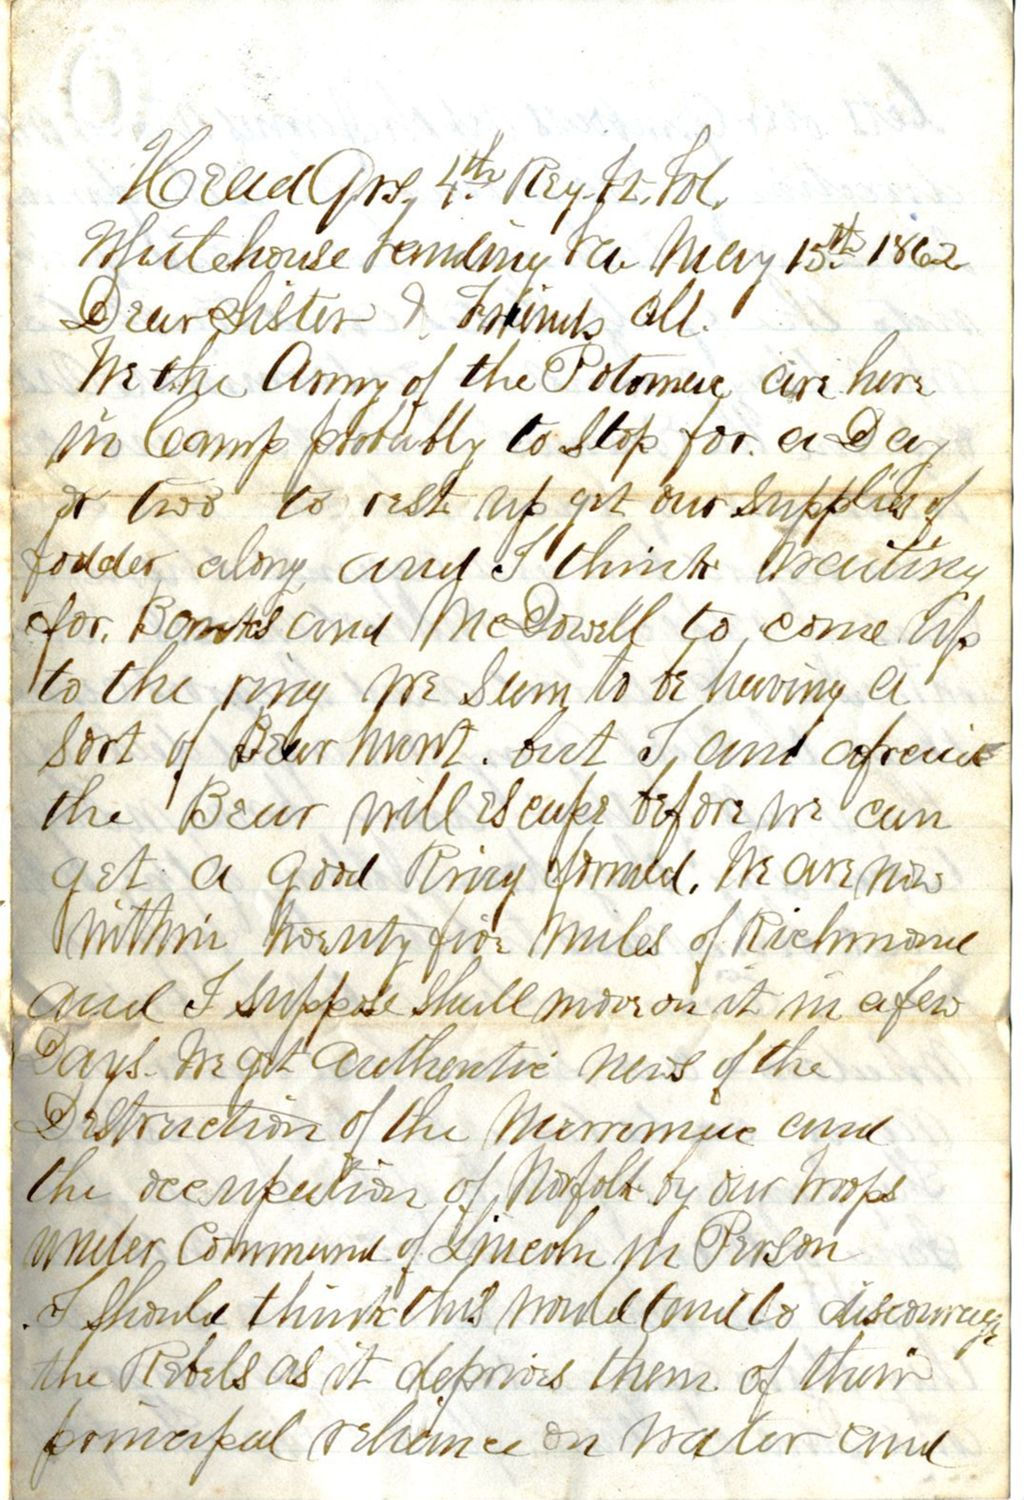 Head Qrs, 4th Reg. Vt. Vol.
Whitehouse Landing Va May 15th 1862
Dear Sister & Friends all.
We the Army of the Potomac are here
in Camp probably to stop for a Day
or two to rest up get our supplies of
fodder along and I think waiting
for Banks and McDowell to come up
to the ring we seem to be having a
sort of Bear hunt. but I am afraid
the Bear will escape before we can
get a good Ring formed. We are now
within twenty five miles of Richmond
and I suppose shall move on it in a few
Days. We get authentic news of the
Destruction of the Merrimac and
the occupation of Norfolk by our troops
under Command of Lincoln in Person
I should think this would tend to discourage
the Rebels as it deprives them of their
principal reliance on water and